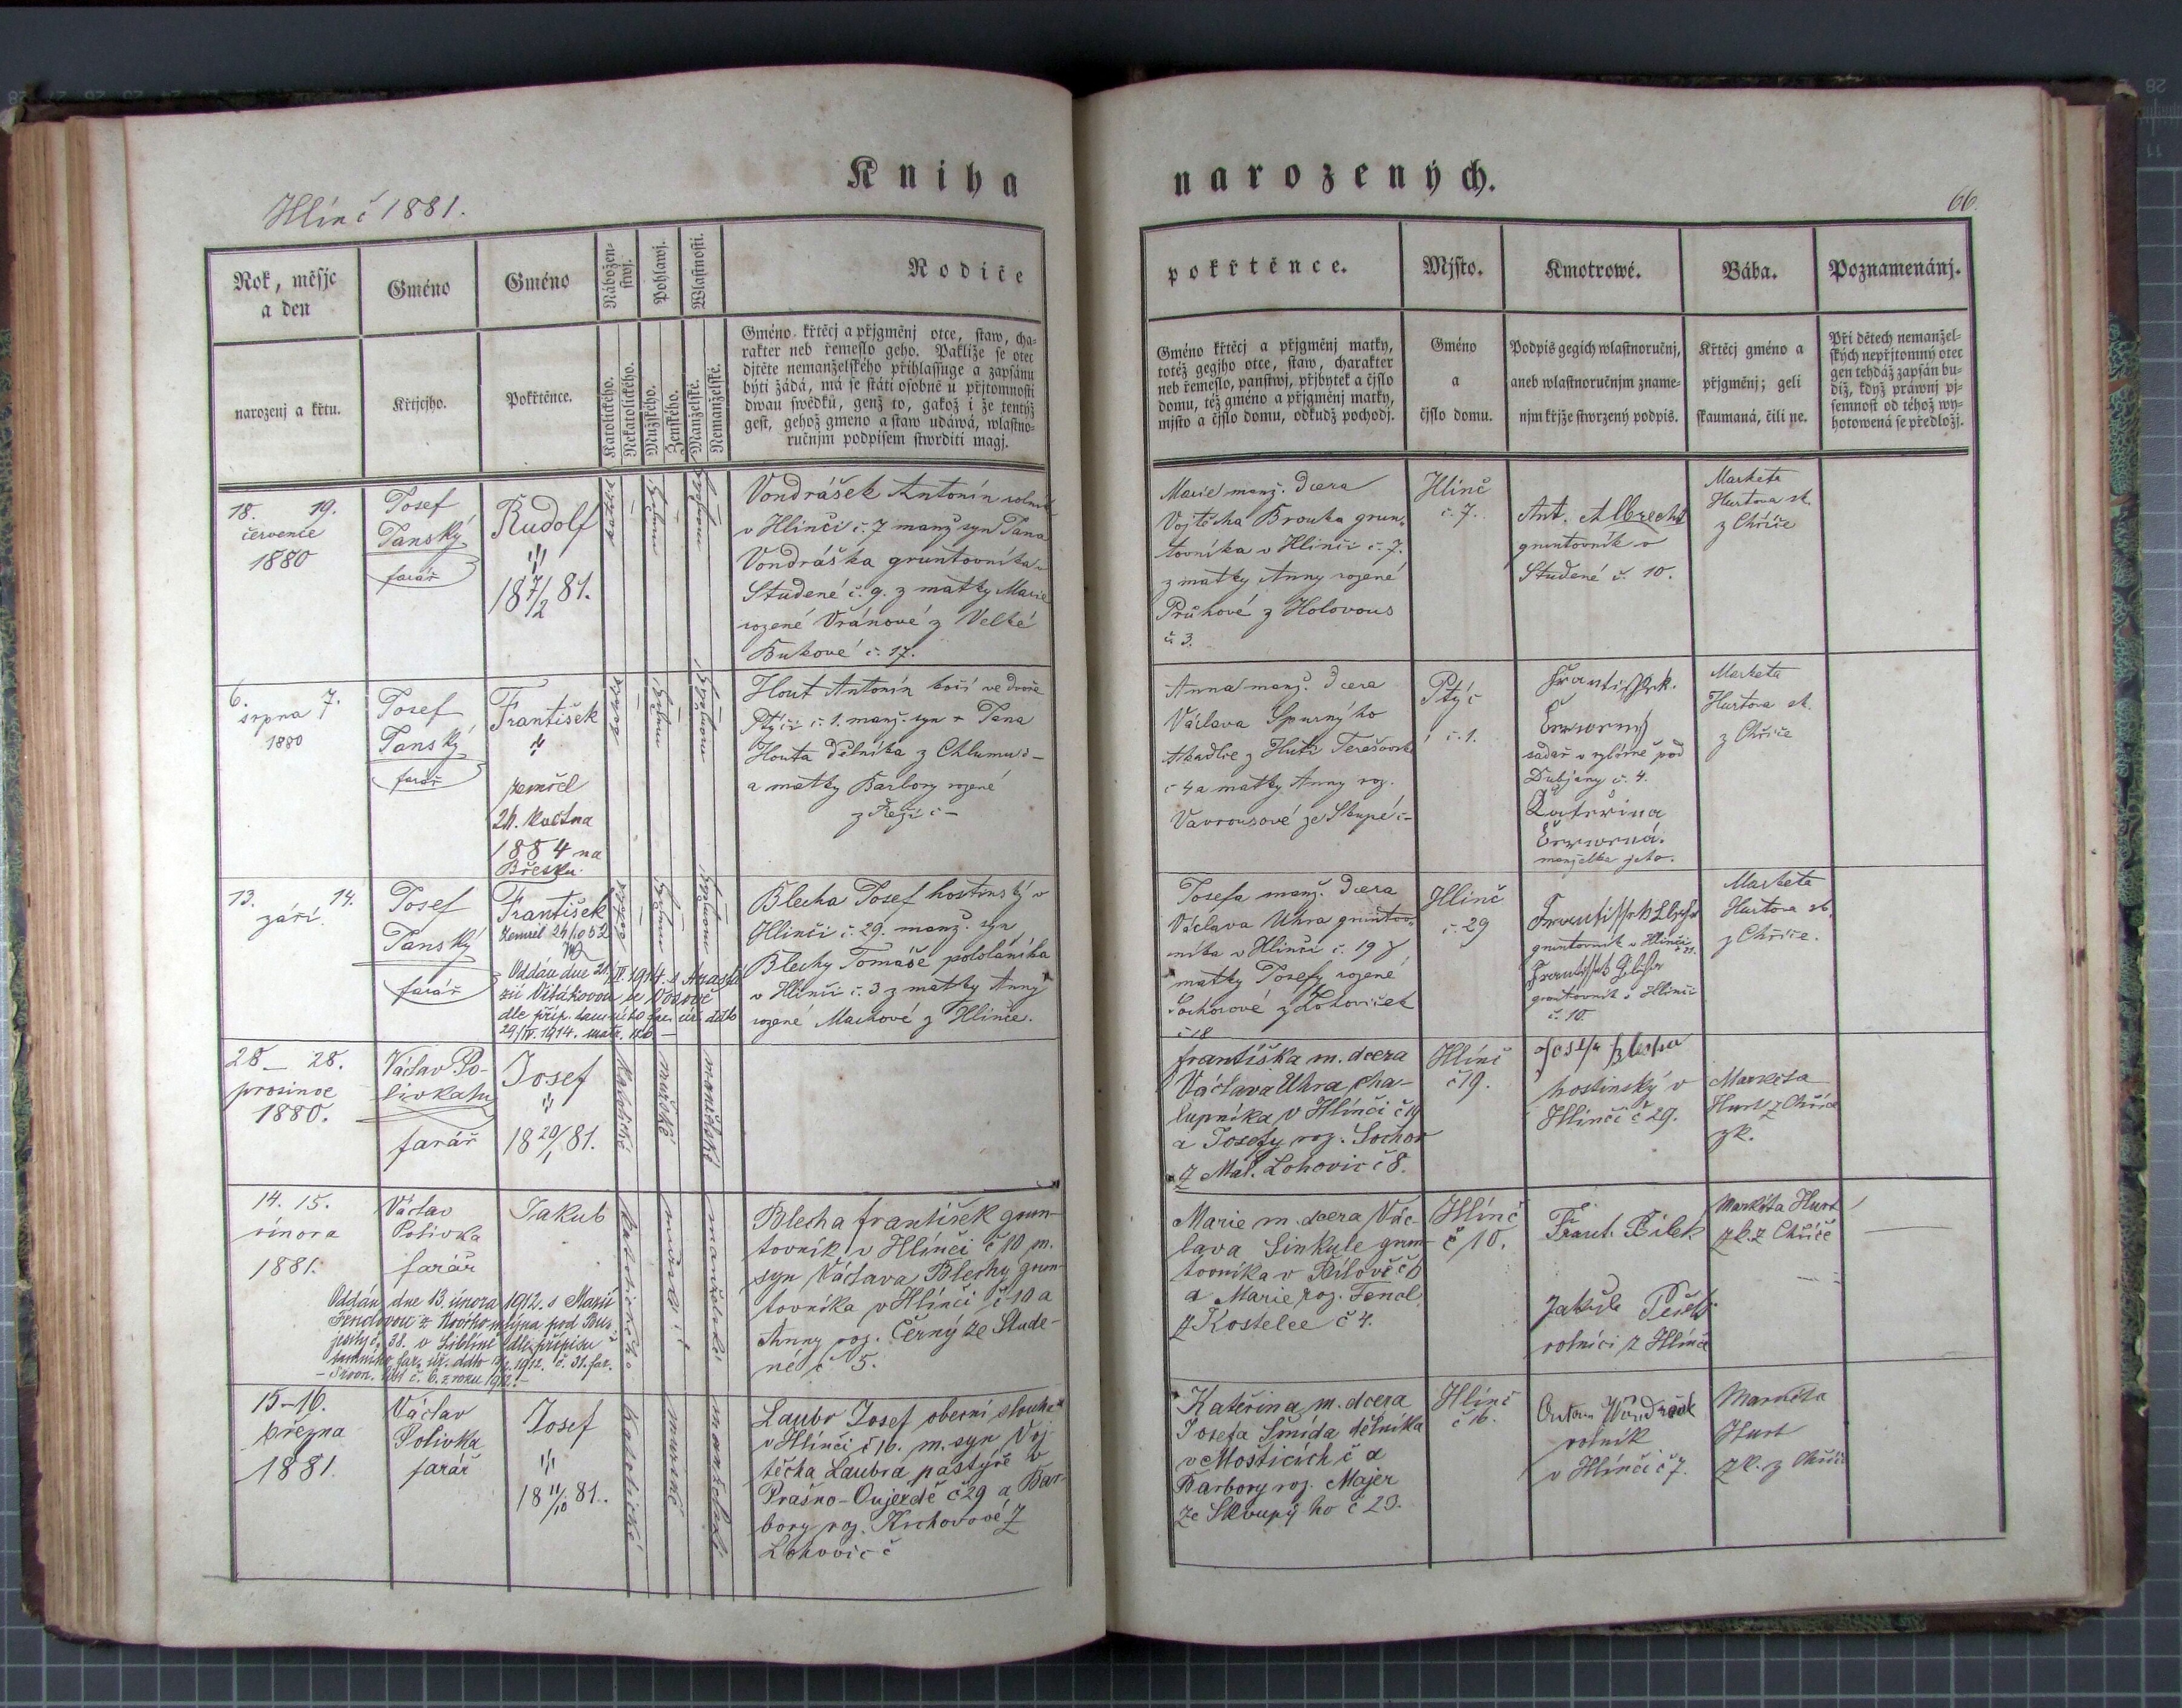 Kniha
narozených.
Hlínč 1881.
66.
Rok, měsjc
a den
narozenj a křtu.
Gméno
Křtjcjho.
Gméno
Pokřtěnce.
Nábožen-
stwj.
Katolického.
Nekatolického.
Pohlawj.
Mužského.
Ženského.
Wlastnosti.
Manželské.
Nemanželské.
Rodiče
Gméno křtěcj a přjgměnj otce, staw, cha-
rakter neb řemeslo geho. Pakliže se otec
djtěte nemanželského přihlassuge a zapsánu
býti žádá, má se státi osobně u přjtomnosti
dwau swědků, genž to, gakož i že tentýž
gest, gehož gmeno a staw udáwá, wlastno-
ručnjm podpisem stwrditi magj.
pokřtěnce.
Gméno křtěcj a přjgměnj matky,
totéž gegjho otce, staw, charakter
neb řemeslo, panstwj, přjbytek a čjslo
domu, též gméno a přjgměnj matky,
mjsto a čjslo domu, odkudž pochodj.
Mjsto.
Gméno
a
čjslo domu.
Kmotrowé.
Podpis gegich wlastnoručnj,
aneb wlastnoručnjm zname-
njm křjže stwrzený podpis.
Bába.
Křtěcj gméno a
přjgměnj; geli
skaumaná, čili ne.
Poznamenánj.
Při dětech nemanžel-
ských nepřjtomný otec
gen tehdáž zapsán bu-
diž, když práwnj pj-
semnost od téhož wy-
hotowená se předložj.
18. 19.
července
1880
Josef
Janský
farář
Rudolf
18 7/2 81.
Vondrášek Antonín rolník
v Hlinči č. 7 manž. syn Jana
Vondráška gruntovníka v
Studené č. 9. z matky Marie
rozené Vránové z Velké
Bukové č. 17.
Marie manž. dcera
Vojtěcha Brouka grun-
tovníka v Hlinči č. 7.
z matky Anny rozené
Průhové z Holovous
č 3.
Hlinč
č. 7.
Ant. Albrecht
gruntovník v
Studené č. 10.
Marketa
Hurtova zk.
z Chříče
6. srpna 7.
1880
Josef
Janský
farář
František
zemřel
26. května
1884 na
Břesku.
Hout Antonín kočí ve dvoře
Ptýči č. 1. manž. syn Jana
Houta dělníka z Chlumu č –
a matky Barbory rozené
č –
Anna manž. dcera
Václava Spurného
tkadlce z Huti Terešovské
č 4 a matky Anny roz.
Vavrousové ze Skupé č –
Ptýč
č. 1.
František
pod
č. 4.
Kateřina
manželka jeho.
Marketa
Hurtova zk.
z Chříče
13. září 14.
Josef
Janský
farář
František
Zemřel
Oddán dne 21./IV. 1914. s Anastá-
zií Vítákovou
dle příp. tamního far. úř. ddto
29/IV. 1914.
Blecha Josef hostinský v
Hlinči č. 29. manž. syn
Blechy Tomáše pololáníka
v Hlinči č. 3 z matky Anny
rozené Mackové z Hlinče.
Josefa manž. dcera
Václava Uhra gruntov-
níka v Hlinči č. 19 z
matky Josefy rozené
Sochorové z Lohoviček
č 8
Hlinč
č. 29
gruntovník v Hlinči
gruntovník v Hlinči
č. 10
Marketa
Hurtova zk.
z Chříče.
28 – 28.
prosince
1880.
Václav Po-
livka
farář
Josef
18 20/1 81.
Katolické
mužské
manželské
Františka m. dcera
Václava Uhra cha-
lupníka v Hlínči č 19
a Josefy roz. Sochor
z Mal. Lohovic č 8.
Hlínč
č 19.
Josef Blecha
hostinský v
Hlínči č 29.
Markéta
Hurt z Chříče
zk.
14. 15.
února
1881.
Václav
Polivka
farář
Jakub
Oddán dne 13. února 1912. s Marií
Fenclovou z
č. 38. v Liblíně dle přípisu
tamního far. úř. ddto 1912. č. 31. far.
č. 6. z roku 1912. –
Blecha František grun-
tovník v Hlínči č 10 m.
syn Václava Blechy grun-
tovníka v Hlínči č 10 a
Anny roz. Černý ze Stude-
né č 5.
Marie m. dcera Vác-
lava Sinkule grun-
tovníka v Bílově č 6
a Marie roz. Fencl
z Kostelce č 4.
Hlínč
č 10.
Frant. Bílek
Jakub Pešek
rolníci z Hlínče
Markéta Hurt
zk. z Chříče
15–16.
března
1881.
Václav
Polivka
farář
Josef
18 11/10 81.
Katolické
mužské
manželské
Laubr Josef obecní sluha
v Hlínči č 16. m. syn Voj-
těcha Laubra pastýře v
Prašno-Oujezdě č 29 a Bar-
bory roz. Krchovové z
Lohovic č
Kateřina m. dcera
Josefa Šmída dělníka
v Mošticích č a
Barbory roz. Majer
ze Skoupý ho č 23.
Hlínč
č 16.
rolník
v Hlínči č 7.
Markéta
Hurt
zk. z Chříče